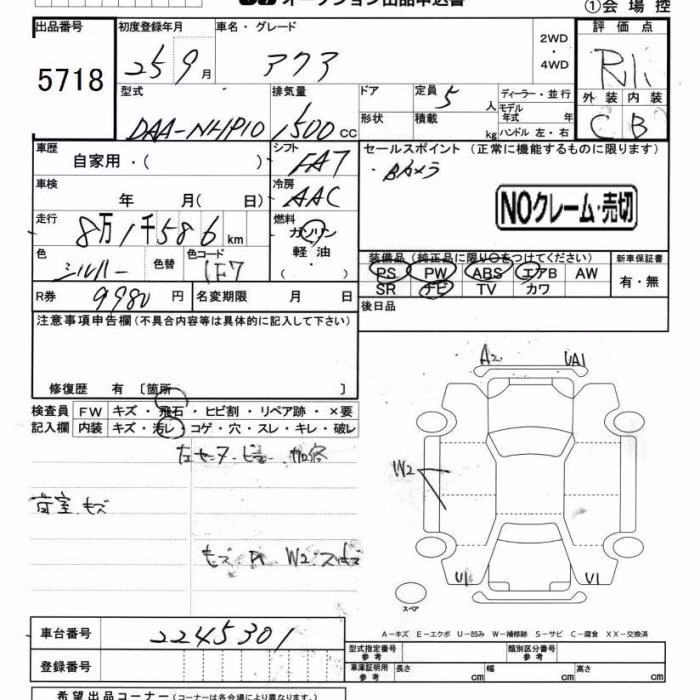 オークション出品申込書
①会場控
出品番号
5718
初度登録年月
25 9月
車名・グレード
アクア
2WD
・
4WD
評価点
R1
外装 内装
C B
型式
DAA-NHP10
排気量
1500 cc
ドア
形状
定員 5 人
積載 kg
ディーラー・並行
モデル年式 年
ハンドル 左・右
車歴
自家用・( )
シフト
FA7
車検
年 月( 日)
冷房
AAC
走行
8万1千586 km
燃料
ガソリン
軽油
( )
色
シルバー
色替
色コード
1F7
R券 9980 円
名変期限 月 日
セールスポイント (正常に機能するものに限ります)
・Bカメラ
NOクレーム・売切
装備品 (純正品に限り○をつけてください)
PS PW ABS エアB AW
SR ナビ TV カワ
新車保証書
有・無
後日品
注意事項申告欄(不具合内容等は具体的に記入して下さい)
修復歴 有 〔箇所 〕
検査員 FW キズ・飛石・ヒビ割・リペア跡・×要
記入欄 内装 キズ・汚レ・コゲ・穴・スレ・キレ・破レ
荷室キズ
A2 UA1
W2
U1 U1
スペア
A-キズ E-エクボ U-凹み W-補修跡 S-サビ C-腐食 XX-交換済
車台番号 2245301
登録番号
型式指定番号 参考
類別区分番号 参考
車庫証明用 参考 長さ cm 幅 cm 高さ cm
希望出品コーナー(コーナーは各会場により異なります)